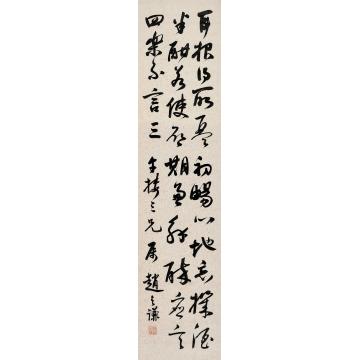 耳根得所琴初暢心地忘機酒
半酣若使啟期兼解醉應言
四樂不言三 三兄屬趙之謙